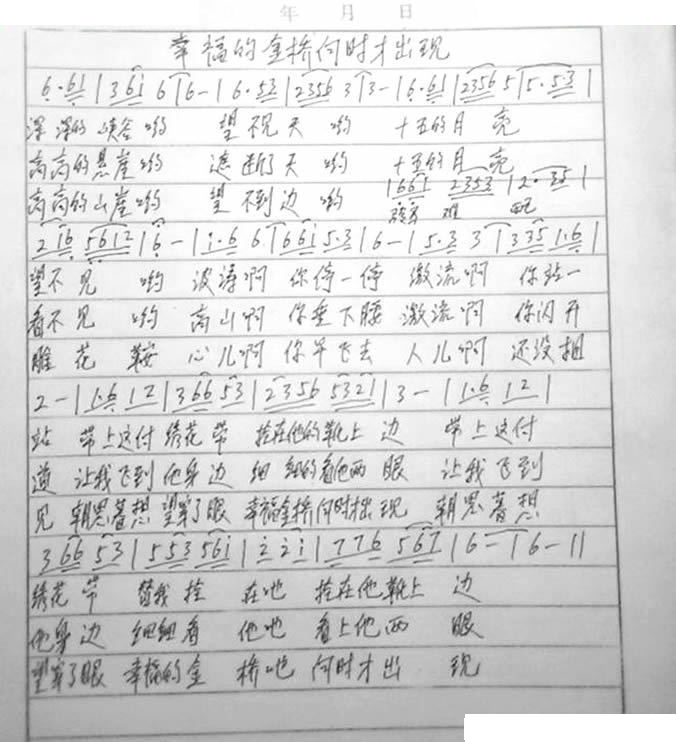 年 月 日
幸福的金桥何时才出现
6·61 | 3 61 6 | 6 - | 6·53 | 2356 3 | 3 - | 6·61 | 2356 5 | 5·53 |
深深的峡谷哟 望不见天哟 十五的月亮
高高的悬崖哟 遮断了天哟 十五的月亮
高高的山崖哟 望不到边哟 1661 2353 | 2·35 |
2 16 5612 | 6 - | 1·6 6 | 661 53 | 6 - | 5·3 3 | 335 1·6 |
望不见 哟 波涛啊 你停一停 激流啊 你站一
看不见 哟 高山啊 你垂下腰 激流啊 你闪开
雕花 鞍 心儿啊 你早飞去 人儿啊 还没相
2 - | 1·6 12 | 366 53 | 2356 5321 | 3 - | 1·6 12 |
站 带上这付绣花带 拴在他的靴上边 带上这付
道 让我飞到他身边 细细的看他两眼 让我飞到
见 朝思暮想望穿了眼 幸福金桥何时才出现 朝思暮想
366 53 | 553 561 | 2 21 | 776 567 | 6 - | 6 - ||
绣花带 替我拴 在吔 拴在他靴上 边
他身边 细细看 他吔 看上他两 眼
望穿了眼 幸福的金 桥吔 何时才出 现